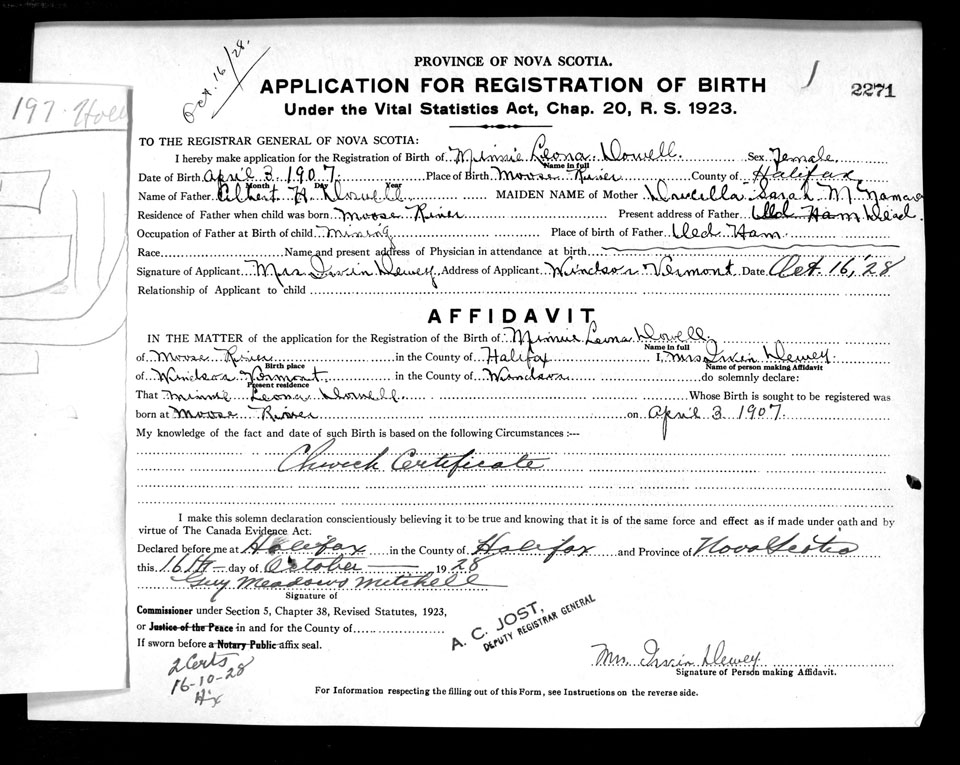 Oct. 16/28.
PROVINCE OF NOVA SCOTIA.
APPLICATION FOR REGISTRATION OF BIRTH
2271
Under the Vital Statistics Act, Chap. 20, R. S. 1923.
197
TO THE REGISTRAR GENERAL OF NOVA SCOTIA:
I hereby make application for the Registration of Birth of Minnie Leona Dowell. Sex Female
Name in full
Date of Birth April 3 1907. Place of Birth Moose River County of Halifax
Month Day Year
Name of Father Albert H. Dowell MAIDEN NAME of Mother Sarah McNamara
Residence of Father when child was born Moose River Present address of Father Dead
Occupation of Father at Birth of child Mining Place of birth of Father Ham.
Race Name and present address of Physician in attendance at birth
Signature of Applicant Mrs Irwin Dewey Address of Applicant Windsor Vermont Date Oct. 16, '28
Relationship of Applicant to child
AFFIDAVIT
IN THE MATTER of the application for the Registration of the Birth of Minnie Leona Dowell.
Name in full
of Moose River in the County of Halifax I, Mrs Irwin Dewey
Birth place Name of person making Affidavit
of Windsor Vermont in the County of Windsor do solemnly declare:
Present residence
That Minnie Leona Dowell Whose Birth is sought to be registered was
born at Moose River on April 3 1907.
My knowledge of the fact and date of such Birth is based on the following Circumstances :—
Church Certificate
I make this solemn declaration conscientiously believing it to be true and knowing that it is of the same force and effect as if made under oath and by
virtue of The Canada Evidence Act.
Declared before me at Halifax in the County of Halifax and Province of Nova Scotia
this 16th day of October 1928
Guy Meadows Mitchell
Signature of
Commissioner under Section 5, Chapter 38, Revised Statutes, 1923,
or Justice of the Peace in and for the County of
If sworn before a Notary Public affix seal.
A. C. JOST,
DEPUTY REGISTRAR GENERAL
2 Certs
16-10-28
Hx
Mrs. Irwin Dewey
Signature of Person making Affidavit.
For Information respecting the filling out of this Form, see Instructions on the reverse side.